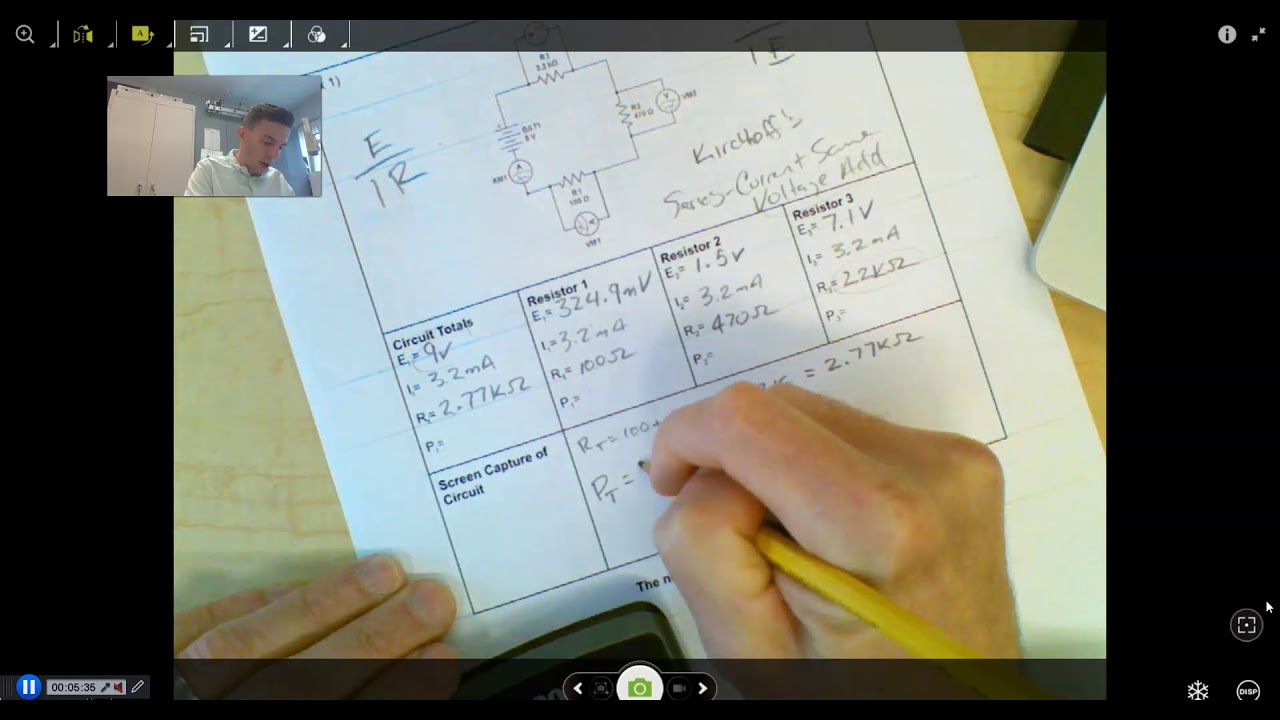 1)
E
I R
I E
R3
2.2 kΩ
BAT1
9 V
AM1
R2
470 Ω
VM2
R1
100 Ω
VM1
Kirchoff's
Series-Current Same
Voltage Add
Circuit Totals
E = 9V
I = 3.2mA
R = 2.77KΩ
P =
Resistor 1
E = 324.9mV
I = 3.2mA
R = 100Ω
P =
Resistor 2
E = 1.5V
I = 3.2mA
R = 470Ω
P =
Resistor 3
E = 7.1V
I = 3.2mA
R = 2.2KΩ
P =
Screen Capture of
Circuit
RT = 100+
= 2.77KΩ
PT =
The
00:05:35
DISP